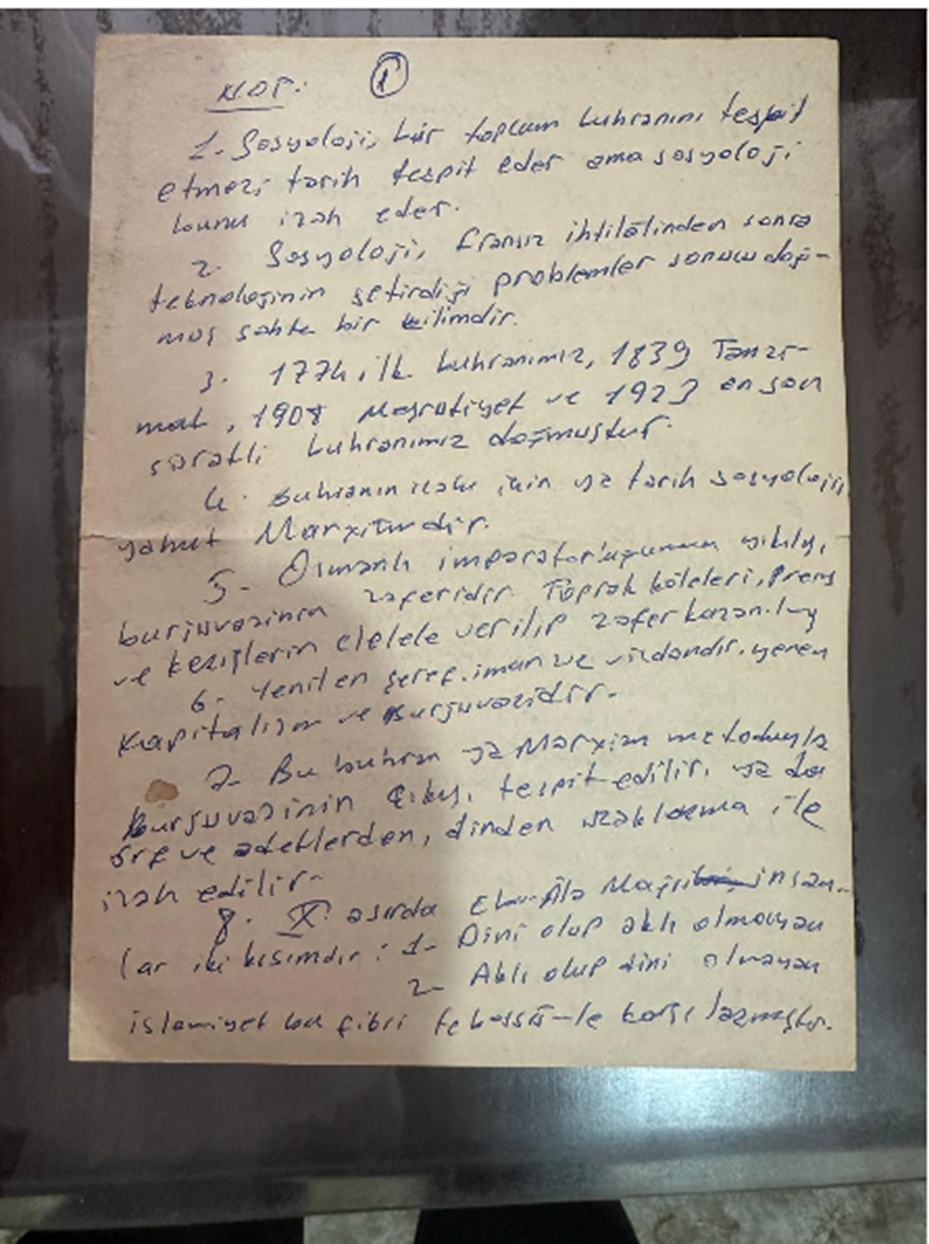 NOT: 1
1. Sosyoloji, bir toplum buhranını tespit
etmez, tarih tespit eder ama sosyoloji
bunu izah eder.
2. Sosyoloji, Fransız ihtilâlinden sonra
teknolojinin getirdiği problemler sonucu doğ-
muş sahte bir bilimdir.
3. 1774 ilk buhranımız, 1839 Tanzi-
mat, 1908 Meşrutiyet ve 1923 en son
buhranımız doğmuştur.
4. Buhranın izahı için ya tarih sosyolojisi
yahut Marxizmdir.
5- Osmanlı imparatorluğunun yıkılışı,
burjuvazinin zaferidir. Toprak köleleri, Prens
ve keşişlerin elele verilip zafer kazanılış
6- Yenilen şeref, iman ve vicdandır, yenen
Kapitalizm ve Burjuvazidir.
7- Bu buhran ya Marxizm metoduyla
burjuvazinin çıkışı, tespit edilir, ya da
örf ve adetlerden, dinden uzaklaşma ile
izah edilir-
8. X. asırda Ebu-Âla Mağri insan-
lar iki kısımdır: 1- Dini olup aklı olmayan
2- Aklı olup dini olmayan
islamiyet bu fikri tebessümle karşılaşmıştır.